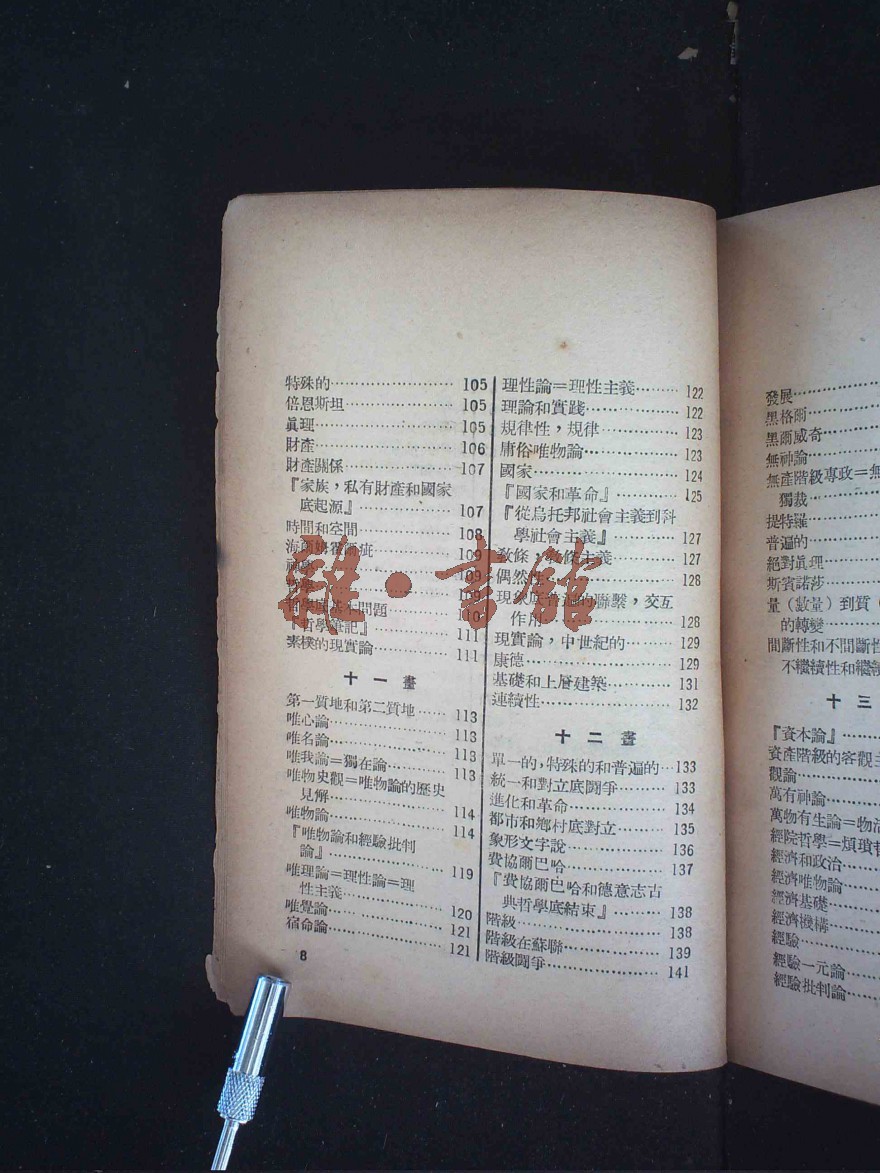 特殊的 105
倍恩斯坦 105
眞理 105
財產 106
財產關係 107
『家族，私有財產和國家
底起源』 107
時間和空間 108
109
109
哲學 109
哲學底基本問題 110
『哲學筆記』 111
素樸的現實論 111
十一畫
第一質地和第二質地 113
唯心論 113
唯名論 113
唯我論＝獨在論 113
唯物史觀＝唯物論的歷史
見解 114
唯物論 114
『唯物論和經驗批判
論』 119
唯理論＝理性論＝理
性主義 120
唯覺論 121
宿命論 121
8
理性論＝理性主義 122
理論和實踐 122
規律性，規律 123
庸俗唯物論 123
國家 124
『國家和革命』 125
『從烏托邦社會主義到科
學社會主義』 127
敎條，敎條主義 127
偶然性 128
現象底普遍的聯繫，交互
作用 128
現實論，中世紀的 129
康德 129
基礎和上層建築 131
連續性 132
十二畫
單一的，特殊的和普遍的 133
統一和對立底鬪爭 133
進化和革命 134
都市和鄉村底對立 135
象形文字說 136
費協爾巴哈 137
『費協爾巴哈和德意志古
典哲學底結束』 138
階級 138
階級在蘇聯 139
階級鬪爭 141
發展
黑格爾
黑爾威奇
無神論
無產階級專政＝無
獨裁
提特羅
普遍的
絕對眞理
斯賓諾莎
量（數量）到質（
的轉變
間斷性和不間斷性
不繼續性和繼續
十三
『資本論』
資產階級的客觀主
觀論
萬有神論
萬物有生論＝物活
經院哲學＝煩瑣哲
經濟和政治
經濟唯物論
經濟基礎
經濟機構
經驗
經驗一元論
經驗批判論
雜·書館